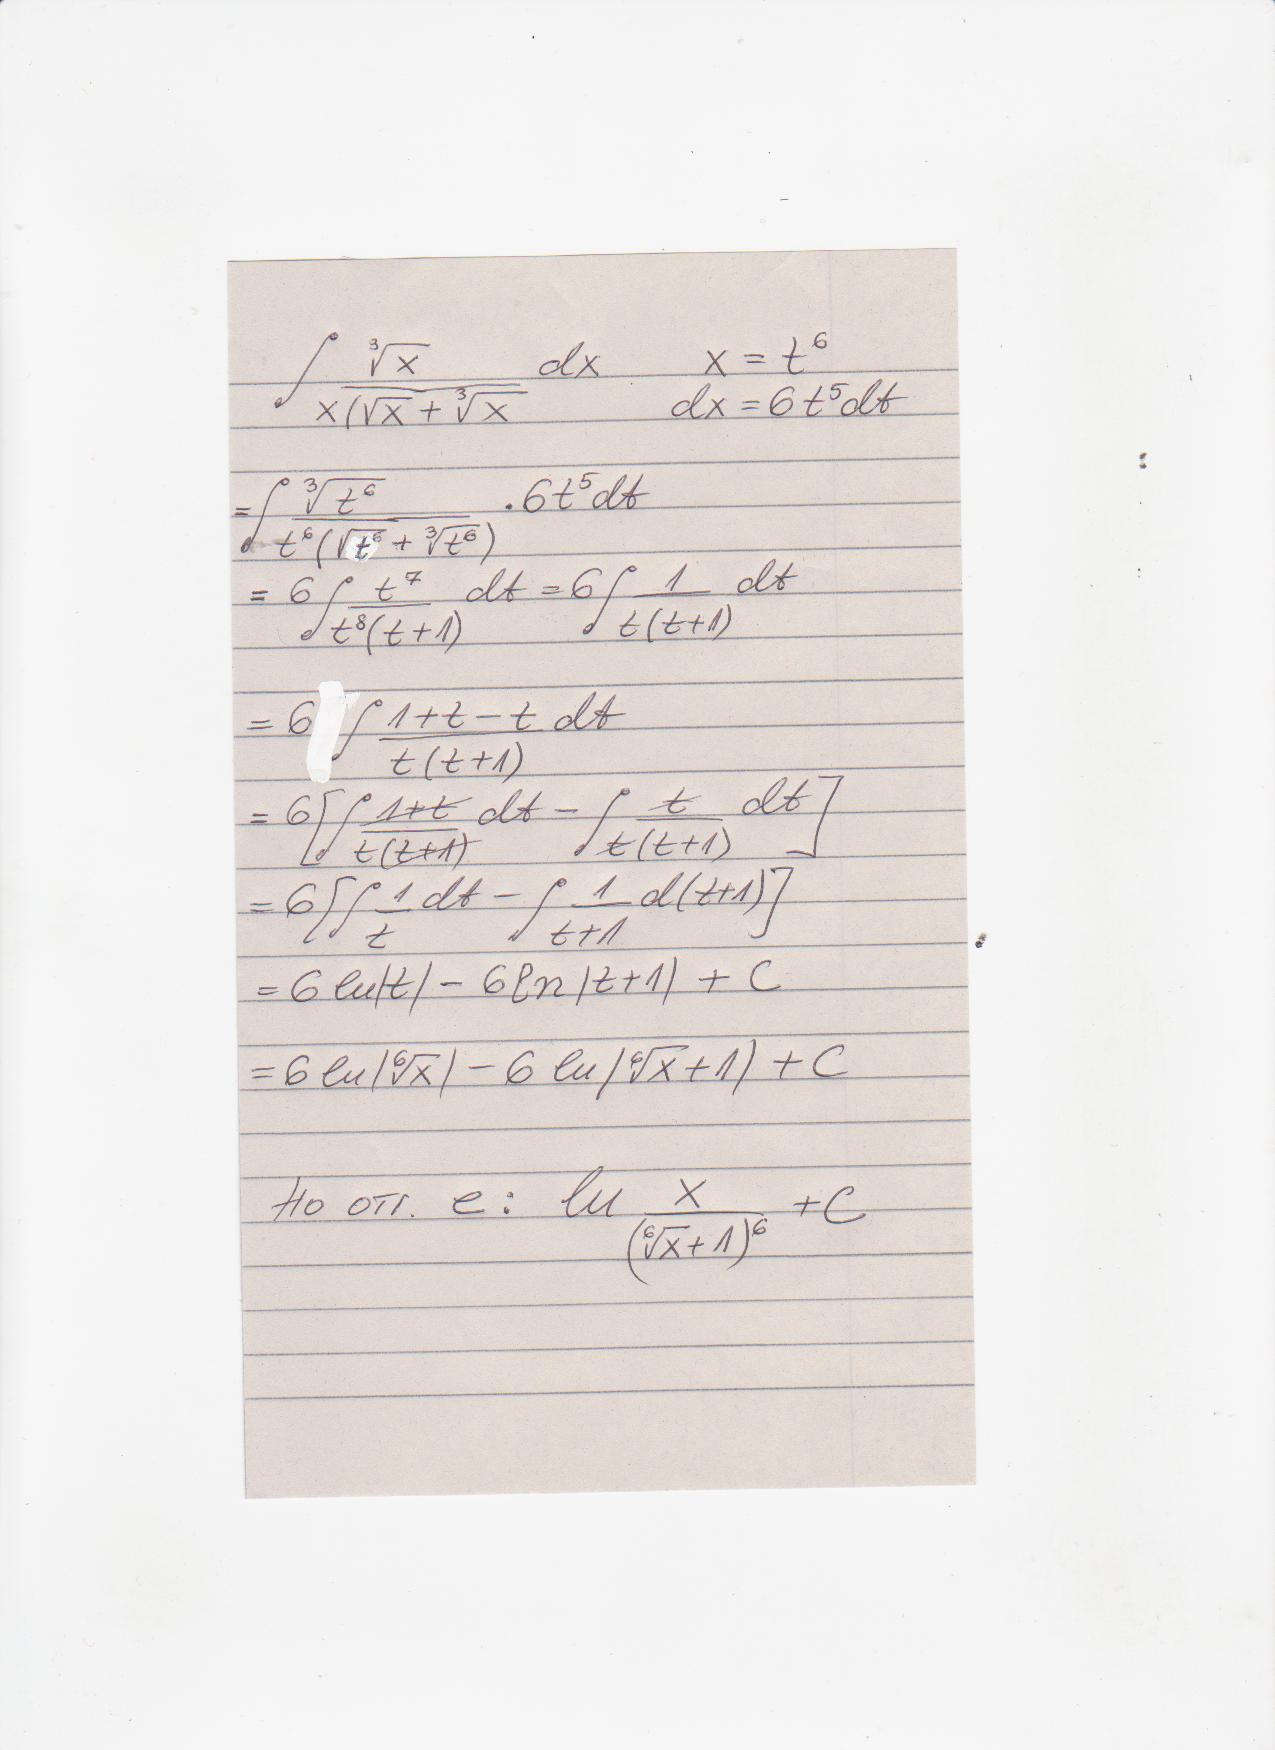 ∫ ∛x / x(√x + ∛x dx x = t⁶
dx = 6t⁵dt
= ∫ ∛t⁶ / t⁶(√t⁶ + ∛t⁶) . 6t⁵dt
= 6∫ t⁷ / t⁸(t+1) dt = 6∫ 1 / t(t+1) dt
= 6 ∫ 1+t−t / t(t+1) dt
= 6[∫ 1+t / t(t+1) dt − ∫ t / t(t+1) dt]
= 6[∫ 1/t dt − ∫ 1 / t+1 d(t+1)]
= 6 ln|t| − 6 ln|t+1| + C
= 6 ln|⁶√x| − 6 ln|⁶√x+1| + C
Но отг. е: ln x / (⁶√x+1)⁶ + C